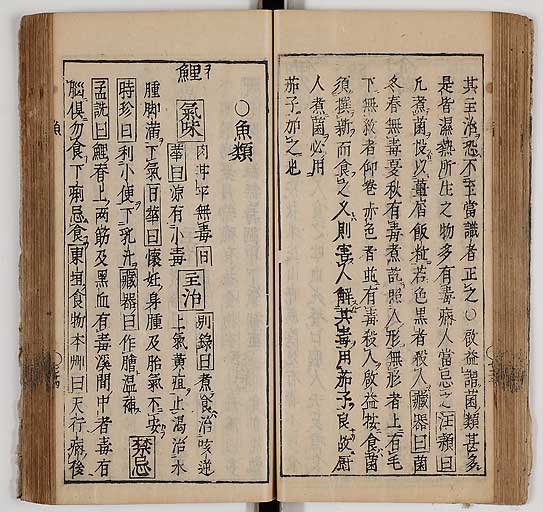 其主治恐不至當識者正之○啟益謂菌類甚多
是皆濕熱所生之物多有毒病人當忌之汪頴曰
凡煮菌投以薑屑飯粒若色黑者殺人藏器曰菌
冬春無毒夏秋有毒煮訖照人形無形者上有毛
下無紋者仰卷赤色者並有毒殺人啟益按食菌
須撰新而食之又則害人解其毒用茄子民故厨
人煮菌必用
茄子加之也
○魚類
鯉 氣味 肉甘平無毒日
華曰涼有小毒 主治 別錄曰煮食治咳逆
上氣黄疸止渴治水
腫脚滿下氣日華曰懷妊身腫及胎氣不安 禁忌
時珍曰利小便下乳汁藏器曰作膾温補
孟詵曰鯉脊上兩筋及黑血有毒溪澗中者毒有
腦俱勿食下痢忌食東垣食物本艸曰天行病後
魚